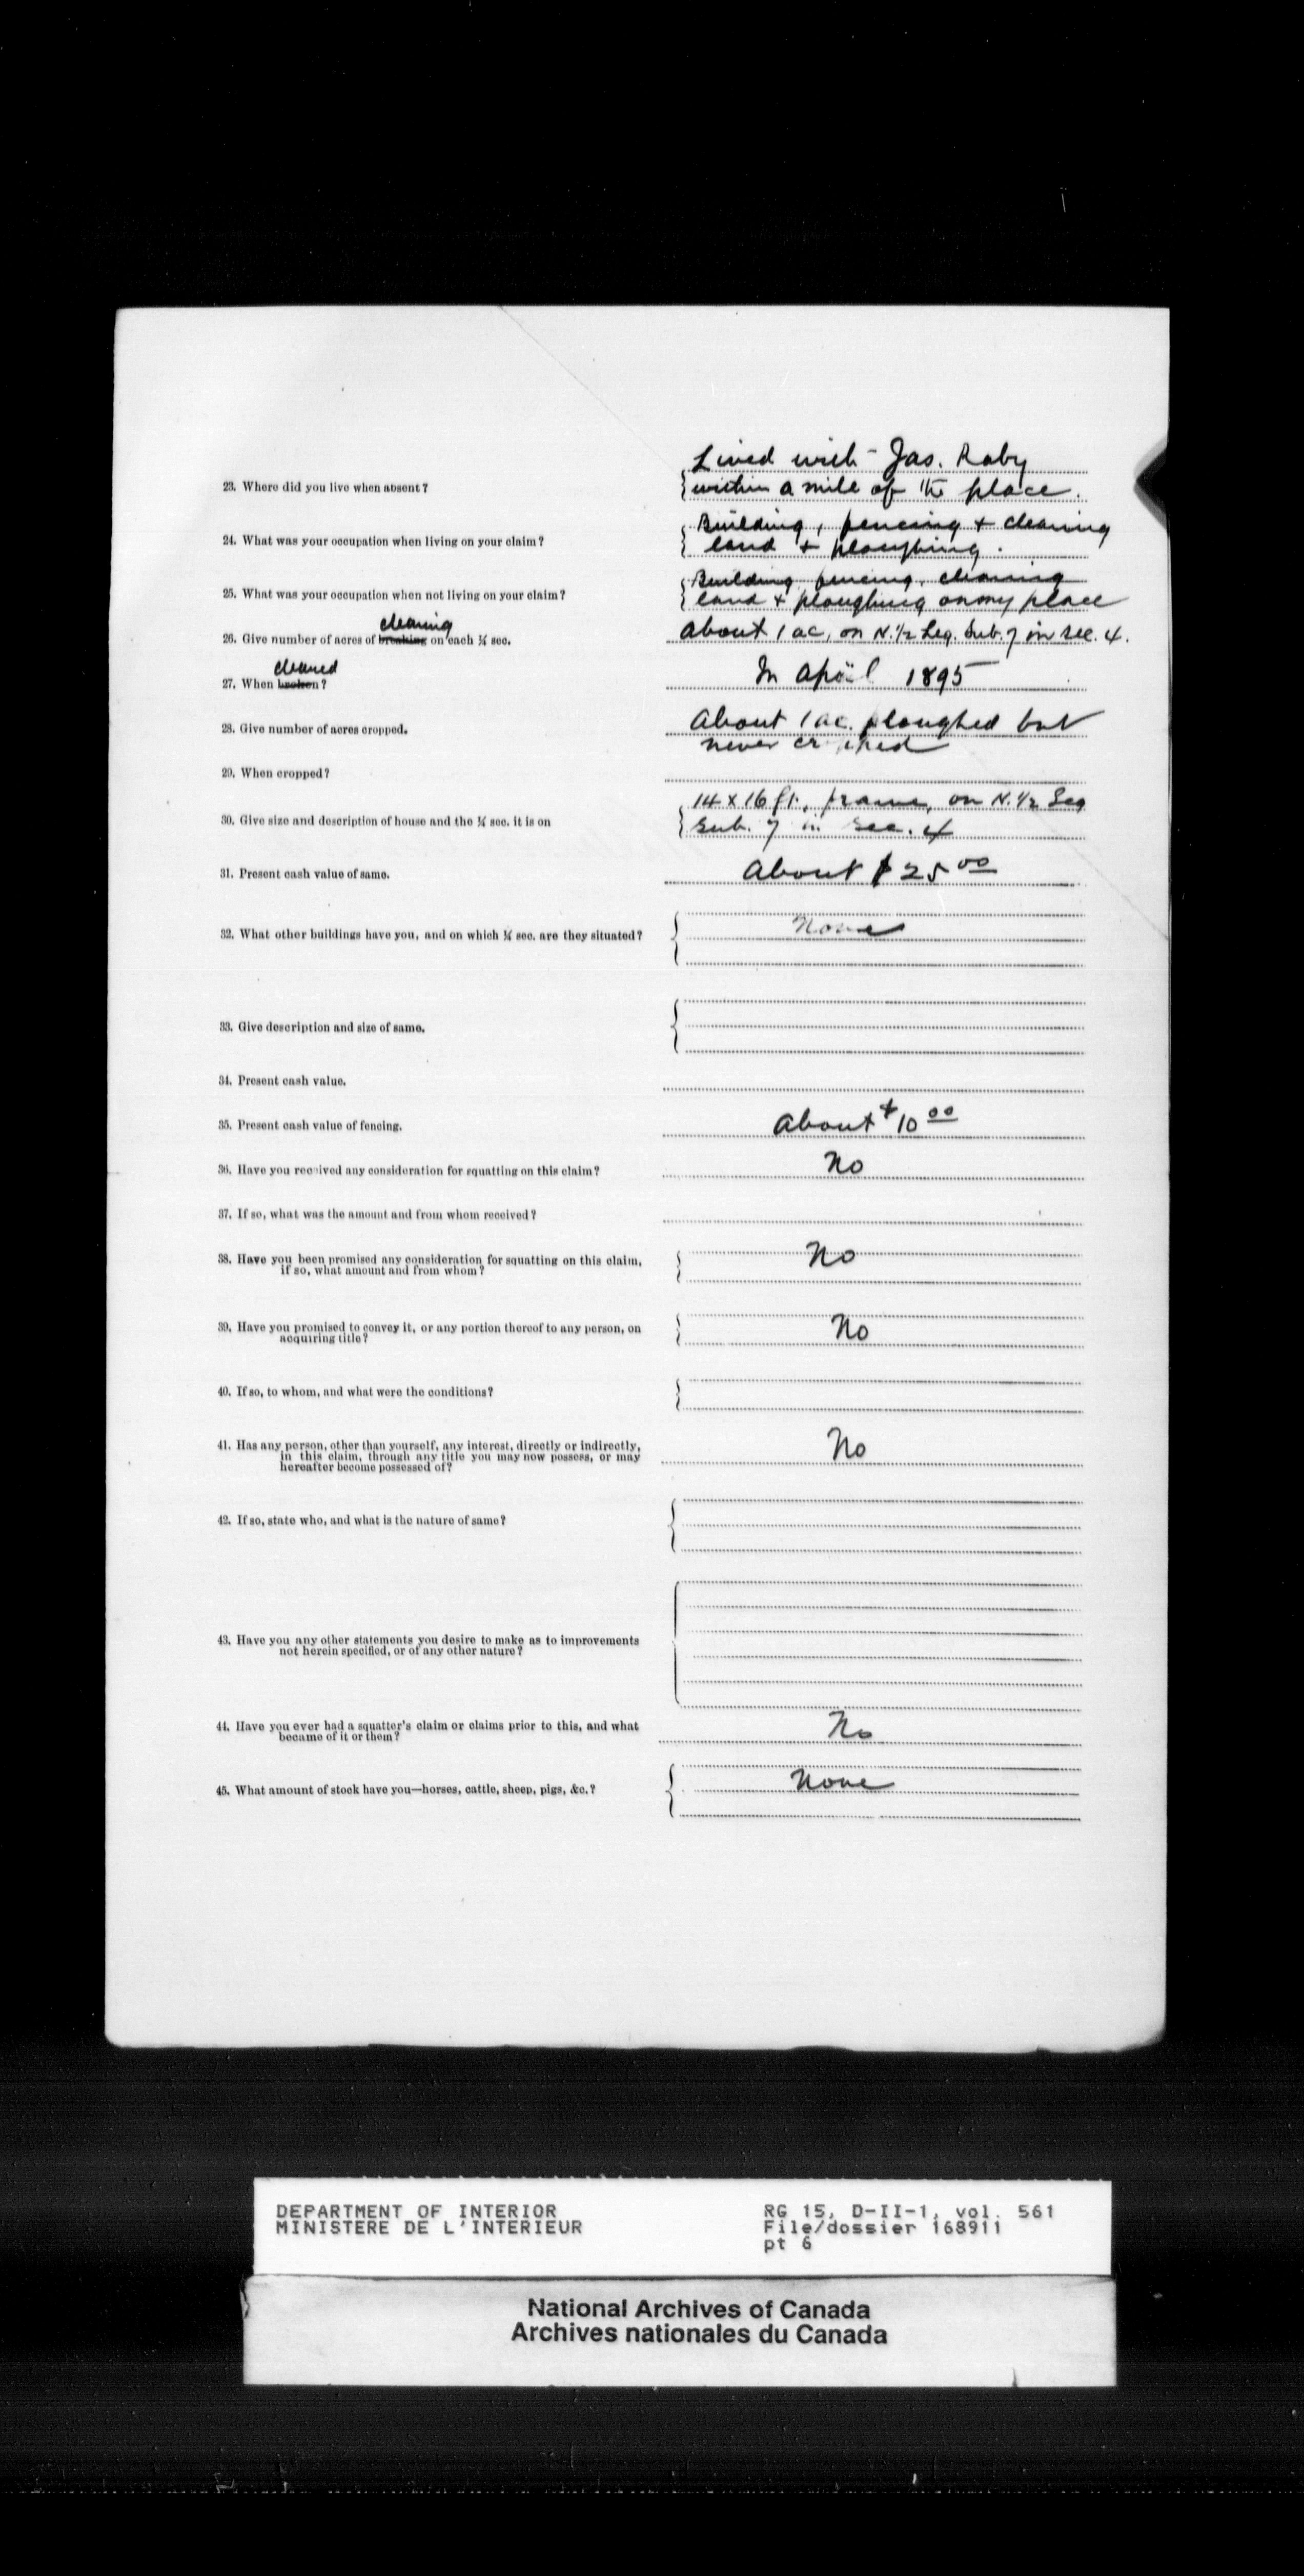 Lived with Jas. Raby
23. Where did you live when absent? within a mile of the place.
Building, fencing + clearing
24. What was your occupation when living on your claim? land + ploughing.
Building fencing, clearing
25. What was your occupation when not living on your claim? land + ploughing on my place
clearing
26. Give number of acres of breaking on each ¼ sec. About 1 ac, on N.½ Leg. Sub. 7 in sec. 4.
cleared
27. When broken? In April 1895
28. Give number of acres cropped. About 1 ac. ploughed but
never cropped
29. When cropped?
14 x 16 ft. frame, on N.½ Leg
30. Give size and description of house and the ¼ sec. it is on sub. 7 in sec. 4
31. Present cash value of same. About $25 00
32. What other buildings have you, and on which ¼ sec. are they situated? None
33. Give description and size of same.
34. Present cash value.
35. Present cash value of fencing. About $10 00
36. Have you received any consideration for squatting on this claim? No
37. If so, what was the amount and from whom received?
38. Have you been promised any consideration for squatting on this claim, No
if so, what amount and from whom?
39. Have you promised to convey it, or any portion thereof to any person, on No
acquiring title?
40. If so, to whom, and what were the conditions?
41. Has any person, other than yourself, any interest, directly or indirectly, No
in this claim, through any title you may now possess, or may
hereafter become possessed of?
42. If so, state who, and what is the nature of same?
43. Have you any other statements you desire to make as to improvements
not herein specified, or of any other nature?
44. Have you ever had a squatter's claim or claims prior to this, and what No
became of it or them?
45. What amount of stock have you—horses, cattle, sheep, pigs, &c.? None
DEPARTMENT OF INTERIOR RG 15, D-II-1, vol. 561
MINISTERE DE L'INTERIEUR File/dossier 168911
pt 6
National Archives of Canada
Archives nationales du Canada